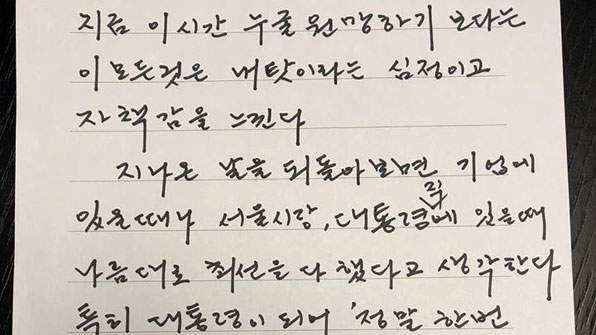 지금 이시간 누굴 원망하기 보다는
이 모든것은 내탓이라는 심정이고
자책감을 느낀다
지나온 날을 되돌아보면 기업에
있을때나 서울시장, 대통령직에 있을때
나름대로 최선을 다 했다고 생각한다
특히 대통령이 되어 '정말 한번